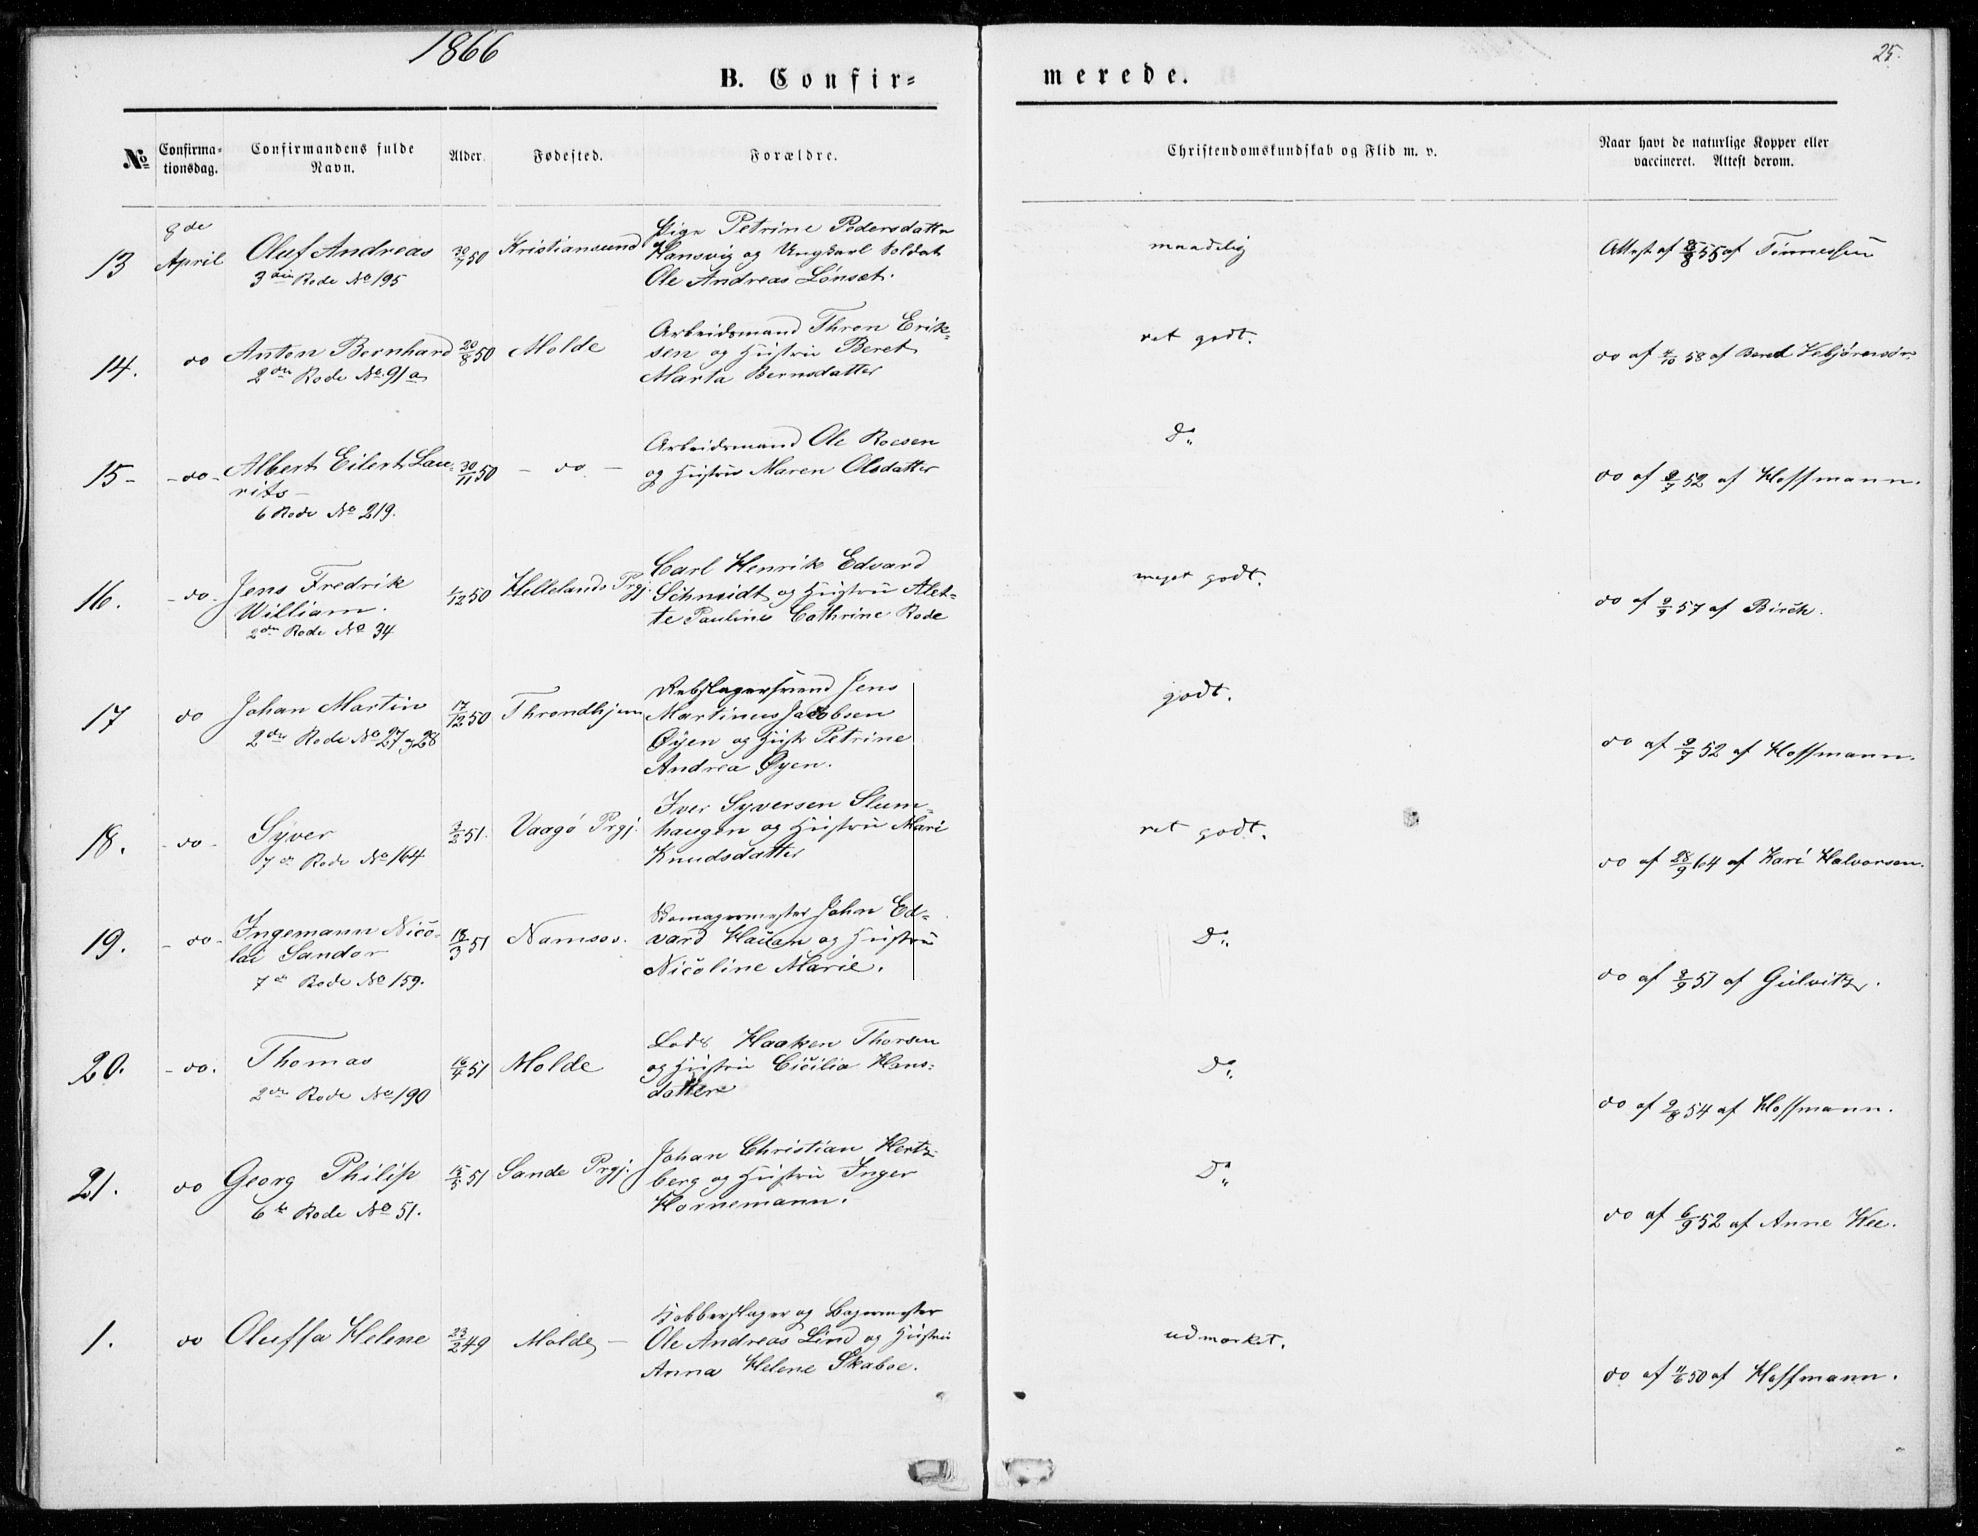 1866
25.
B. Confir=
merede.
No
Confirma-
tionsdag.
Confirmandens fulde
Navn.
Alder.
Fødested.
Forældre.
Christendomskundskab og Flid m. v.
Naar havt de naturlige Kopper eller
vaccineret. Attest derom.
13
8de
April
Oluf Andreas
3die Rode No 195
30/7 50
Kristiansund
Pige Petrine Pedersdatter
Hansvig og Ungkarl Soldat
Ole Andreas Lönset.
maadelig
Attest af 8/8 55 af Tönnessen
14.
do
Anton Bernhard
2den Rode No. 91a
20/8 50
Molde
Arbeidsmand Thron Erik-
sen og Hustru Beret
Marta Bernsdatter
ret godt.
do af 4/10 58 af Bered Vebjörensön
15-
-do-
Albert Eilert Lau-
rits-
6 Rode No 219.
30/11 50
- do -
Arbeidsmand Ole Roesen
og Hustru Maren Olsdatter
Do
do af 9/7 52 af Hoffmann.
16.
-do-
Jens Fredrik
William.
2den Rode No 34
1/12 50
Hellelands Prgj.
Carl Henrik Edvard
Schmidt og Hustru Alet-
te Pauline Cathrine Rode
meget godt.
do af 9/9 57 af Birch.
17
do
Johan Martin
2den Rode No 27 og 28
17/12 50
Throndhjem
Rebslagersvend Jens
Martinus Jacobsen
Øyen og Hustr Petrine
Andrea Øyen.
godt.
do af 9/7 52 af Hoffmann.
18.
-do-
Syver
7de Rode No 164
3/2 51.
Vaagø Prgj.
Iver Syversen Slum-
haugen og Hustru Mari
Knudsdatter
ret godt.
do af 28/9 64 af Kari Halvorsen.
19.
-do-
Ingemann Nico-
lai Sandor
7de Rode No 159.
18/3 51
Namsos.
Skomagermester John Ed-
vard Hauan og Hustru
Nicoline Marie.
Do
do af 8/9 51 af Gulvitz.
20.
-do.
Thomas
2den Rode No 190
16/4 51
Molde
Lods Haaken Thorsen
og Hustru Cicilia Hans-
datter
Do
do af 2/8 54 af Hoffmann.
21.
do
Georg Philip
6te Rode No 51.
15/5 51
Sande Prgj.
Johan Christian Hertz-
berg og Hustru Inger
Hornemann.
Do
do af 6/9 52 af Anne Kee.
1.
do
Oluffa Helene
23/2 49
Molde -
Kobberslager og Bagermester
Ole Andreas Lind og Hustru
Anna Helene Skaboe.
udmærket.
do af 11/6 50 af Hoffmann.